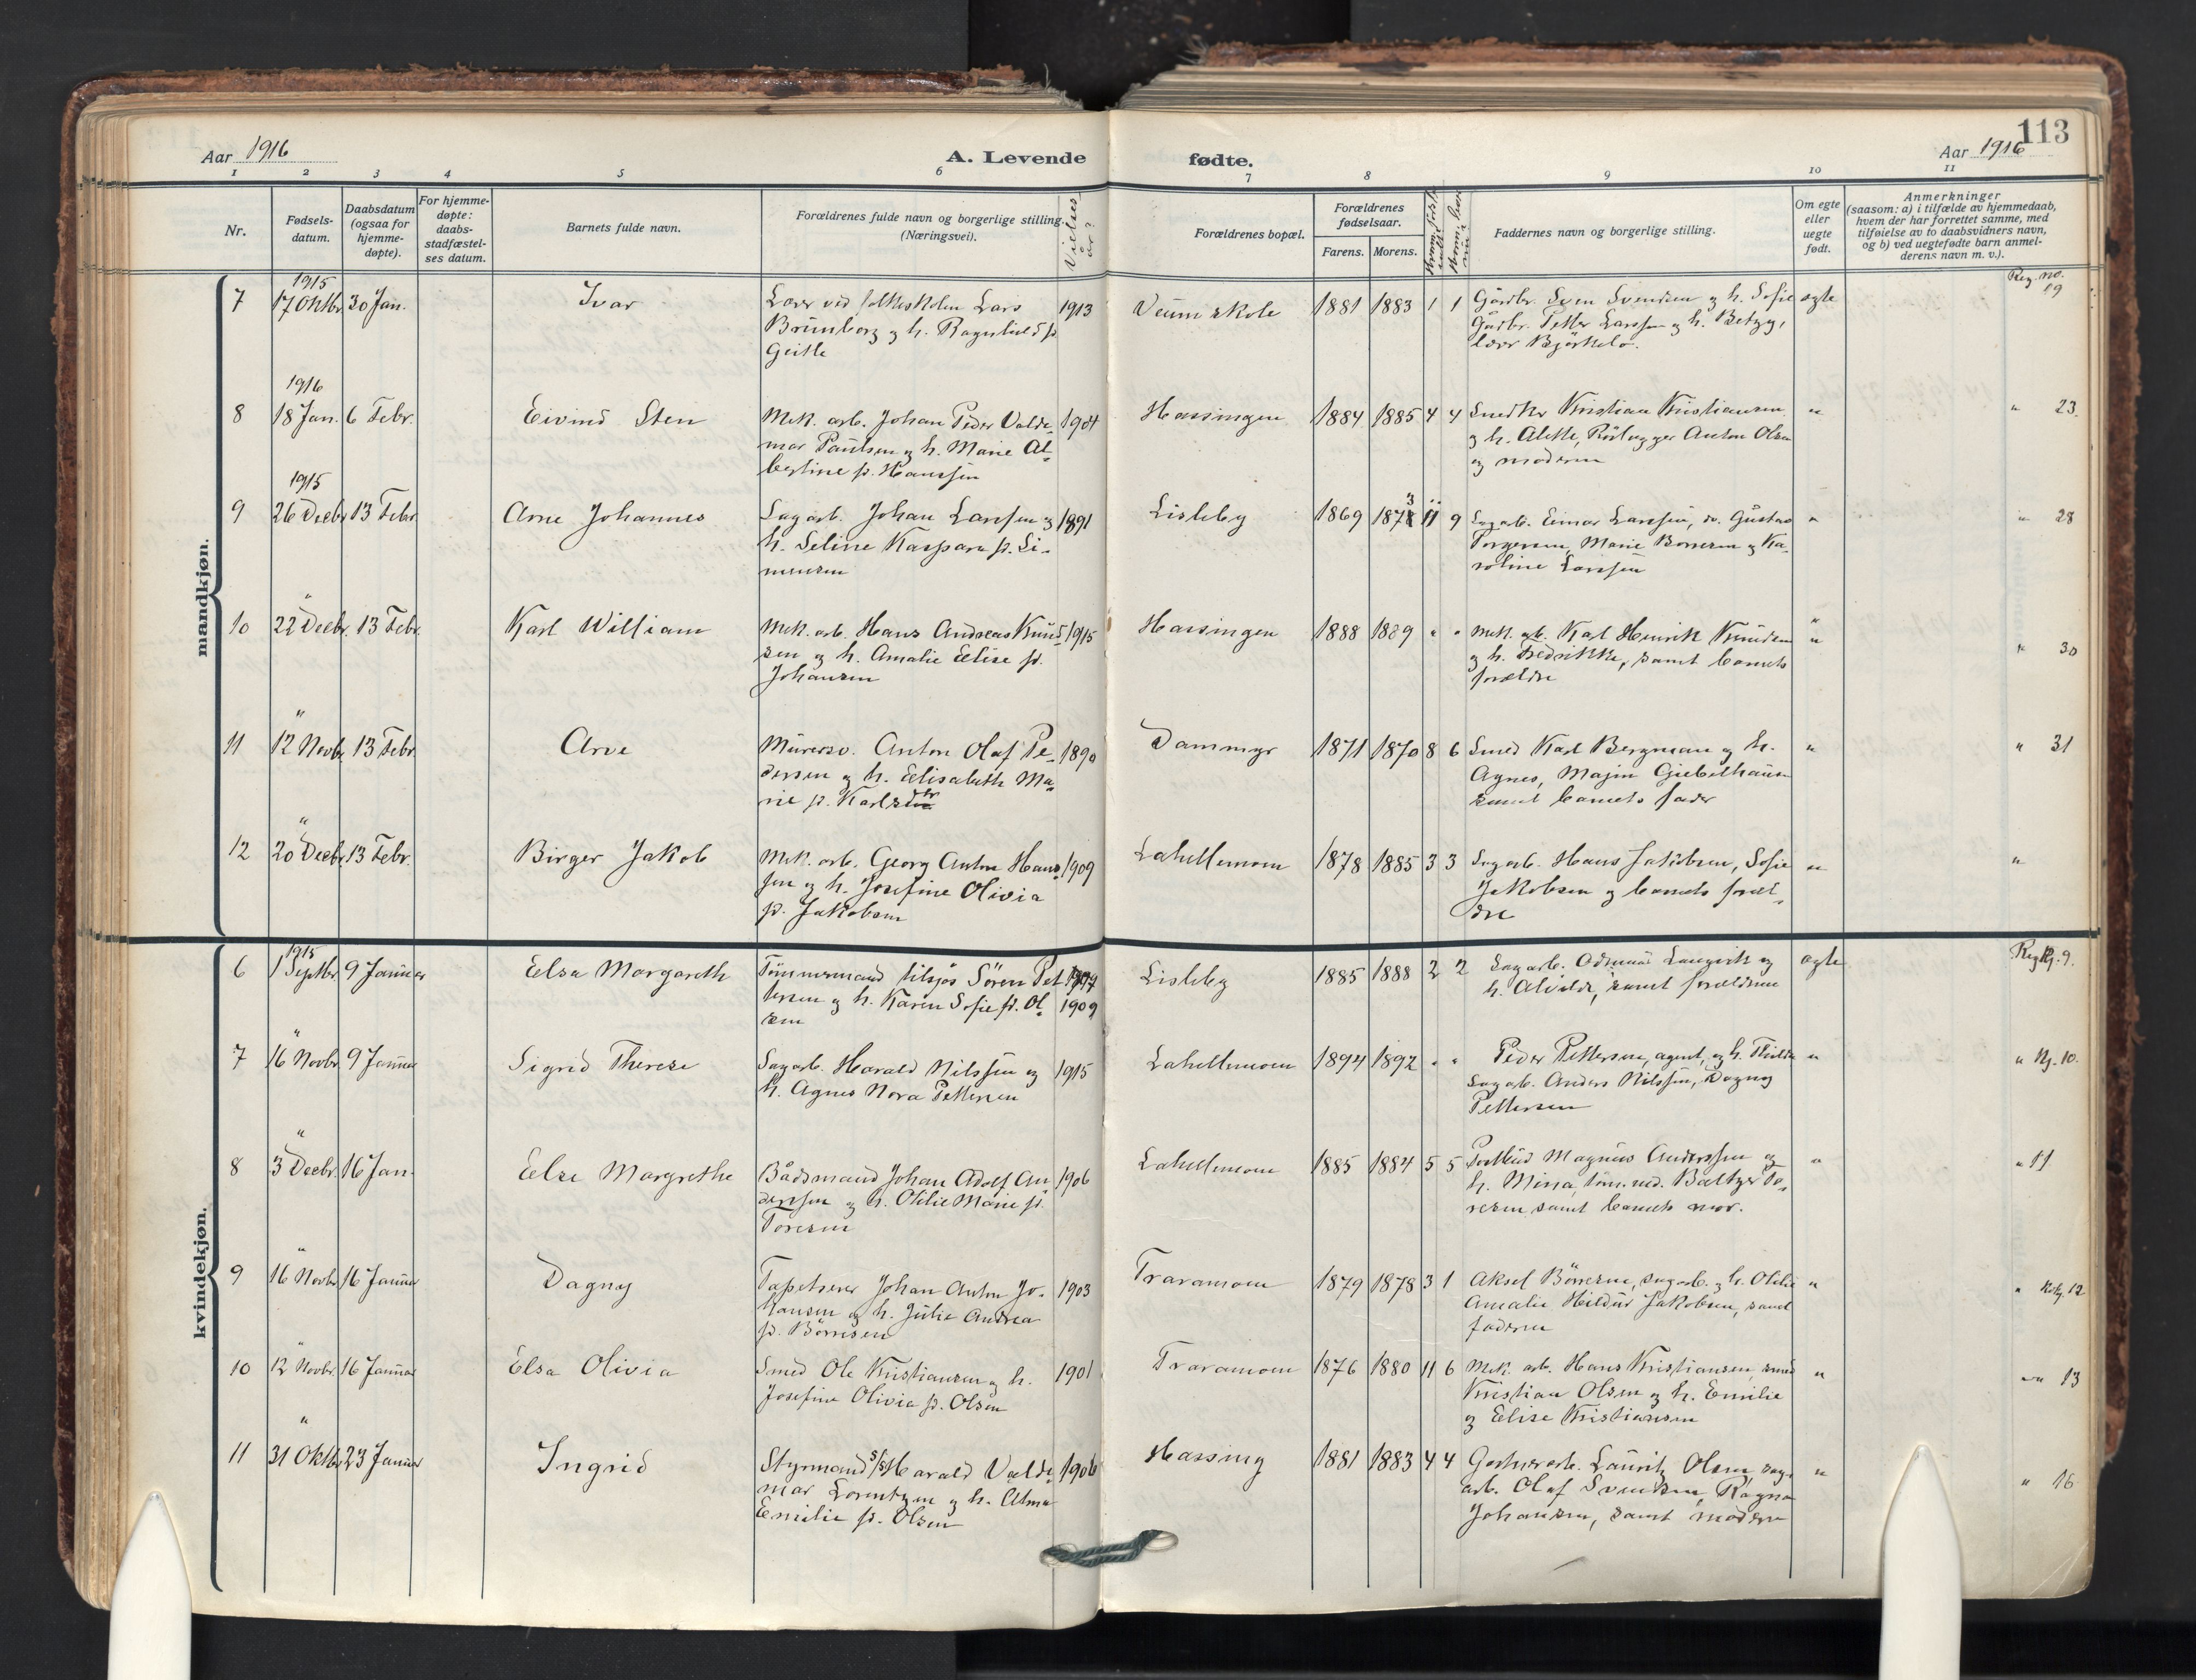 113
Aar 1916
A. Levende fødte.
Aar 1916
1 2 3 4 5 6 7 8 9 10 11
Nr.
Fødsels-
datum.
Daabsdatum
(ogsaa for
hjemme-
døpte).
For hjemme-
døpte:
daabs-
stadfæstel-
ses datum.
Barnets fulde navn.
Forældrenes fulde navn og borgerlige stilling.
(Næringsvei).
Vielses
år?
Forældrenes bopæl.
Forældrenes
fødselsaar.
Farens. Morens.
Faddernes navn og borgerlige stilling.
Om egte
eller
uegte
født.
Anmerkninger
(saasom: a) i tilfælde av hjemmedaab,
hvem der har forrettet samme, med
tilføielse av to daabsvidners navn,
og b) ved uegtefødte barn anmel-
derens navn m. v.).
mandkjøn.
1915
7 17 Oktbr. 30 Jan. Ivar
Lærer ved folkeskolen Lars
Brimborg og h. Ragnhild f.
Geitle
1913 Veum skole 1881 1883 1 1
Gårdbr. Sven Svendsen og h. Sofie
Gårdbr. Petter Larssen og h. Betzy,
lærer Bjørkelo.
egte
Reg. no.
19
1916
8 18 Jan. 6 Febr. Eivind Sten
Mek. arb. Johan Peder Valde-
mar Paulsen og h. Marie Al-
bertine f. Hanssen
1904 Hassingen 1884 1885 4 4
Snedker Kristian Kristiansen
og h. Alette, Rørlegger Anton Olsen
og moderen
" " 23
1915
9 26 Decbr 13 Febr. Arne Johannes
Sagarb. Johan Larssen og
h. Seline Kaspara f. Si-
monsen
1891 Lisleby 1869 1873 11 9
Sagarb. Einar Larssen, do. Gustav
Torgersen, Marie Borresen og Ka-
roline Larssen
" " 28
"
10 22 Decbr. 13 Febr. Karl William
Mek. arb. Hans Andreas Knud-
sen og h. Amalie Elise f.
Johansen
1915 Hassingen 1888 1889 " "
Mek. arb. Karl Henrik Knudsen
og h. Fredrikke, samt barnets
forældre
" " 30
"
11 12 Novbr 13 Febr. Arve
Murersv. Anton Olaf Pe-
dersen og h. Elisabeth Ma-
rie f. Karlsdtr
1890 Dammyr 1871 1870 8 6
Smed Karl Bergman og h.
Agnes, Majm Giebelhausen
samt barnets fader
" " 31
"
12 20 Decbr. 13 Febr. Birger Jakob
Mek. arb. Georg Anton Hans-
sen og h. Josefine Olivia
f. Jakobsen
1909 Lahellemoen 1878 1885 3 3
Sagarb. Hans Jakobsen, Sofie
Jakobsen og barnets foræl-
dre
" "
kvindekjøn.
1915
6 1 Septbr. 9 Januar Elsa Margareth
Tømmermand tilsjøs Søren Pet-
tersen og h. Karen Sofie f. Ol-
sen
1909 Lisleby 1885 1888 2 2
Sagarb. Admund Langvik og
h. Alvilde, samt forældrene
egte
"
7 16 Novbr. 9 Januar Sigrid Therese
Sagarb. Harald Nilssen og
h. Agnes Nora Pettersen
1915 Lahellemoen 1894 1892 " "
Peder Pettersen, agent, og h. Thilda
Sagarb. Anders Nilssen, Dagny
Pettersen
" " Rg. 10.
"
8 3 Decbr. 16 Jan. Else Margrethe
Bådsmand Johan Adolf An-
derssen og h. Otilie Marie f.
Toresen
1906 Lahellemoen 1885 1884 5 5
Postbud Magnus Anderssen og
h. Mina, tøm. md. Baltzer To-
resen samt barnets mor.
" " 11
"
9 16 Novbr 16 Januar Dagny
Tapetserer Johan Anton Jo-
hansen og h. Julie Andrea
f. Børresen
1903 Traramoen 1879 1878 3 1
Aksel Børresen, sagarb. og h. Otilie
Amalie Hildur Jakobsen, samt
faderen
" " Rg. 12
"
10 12 Novbr. 16 Januar Elsa Olivia
Smed Ole Kristiansen og h.
Josefine Olivia f. Olsen
1901 Traramoen 1876 1880 11 6
Mek. arb. Hans Kristiansen, smed
Kristian Olsen og h. Emilie
og Elise Kristiansen
" " 13
"
11 31 Oktbr 23 Januar Ingrid
Styrmand s/s Harald Valde-
mar Lorentzen og h. Alma
Emilie f. Olsen
1906 Hassing 1881 1883 4 4
Garhverarb. Lauritz Olsen sag-
arb. Olaf Svendsen, Ragna
Johansen, samt moderen
" " 16